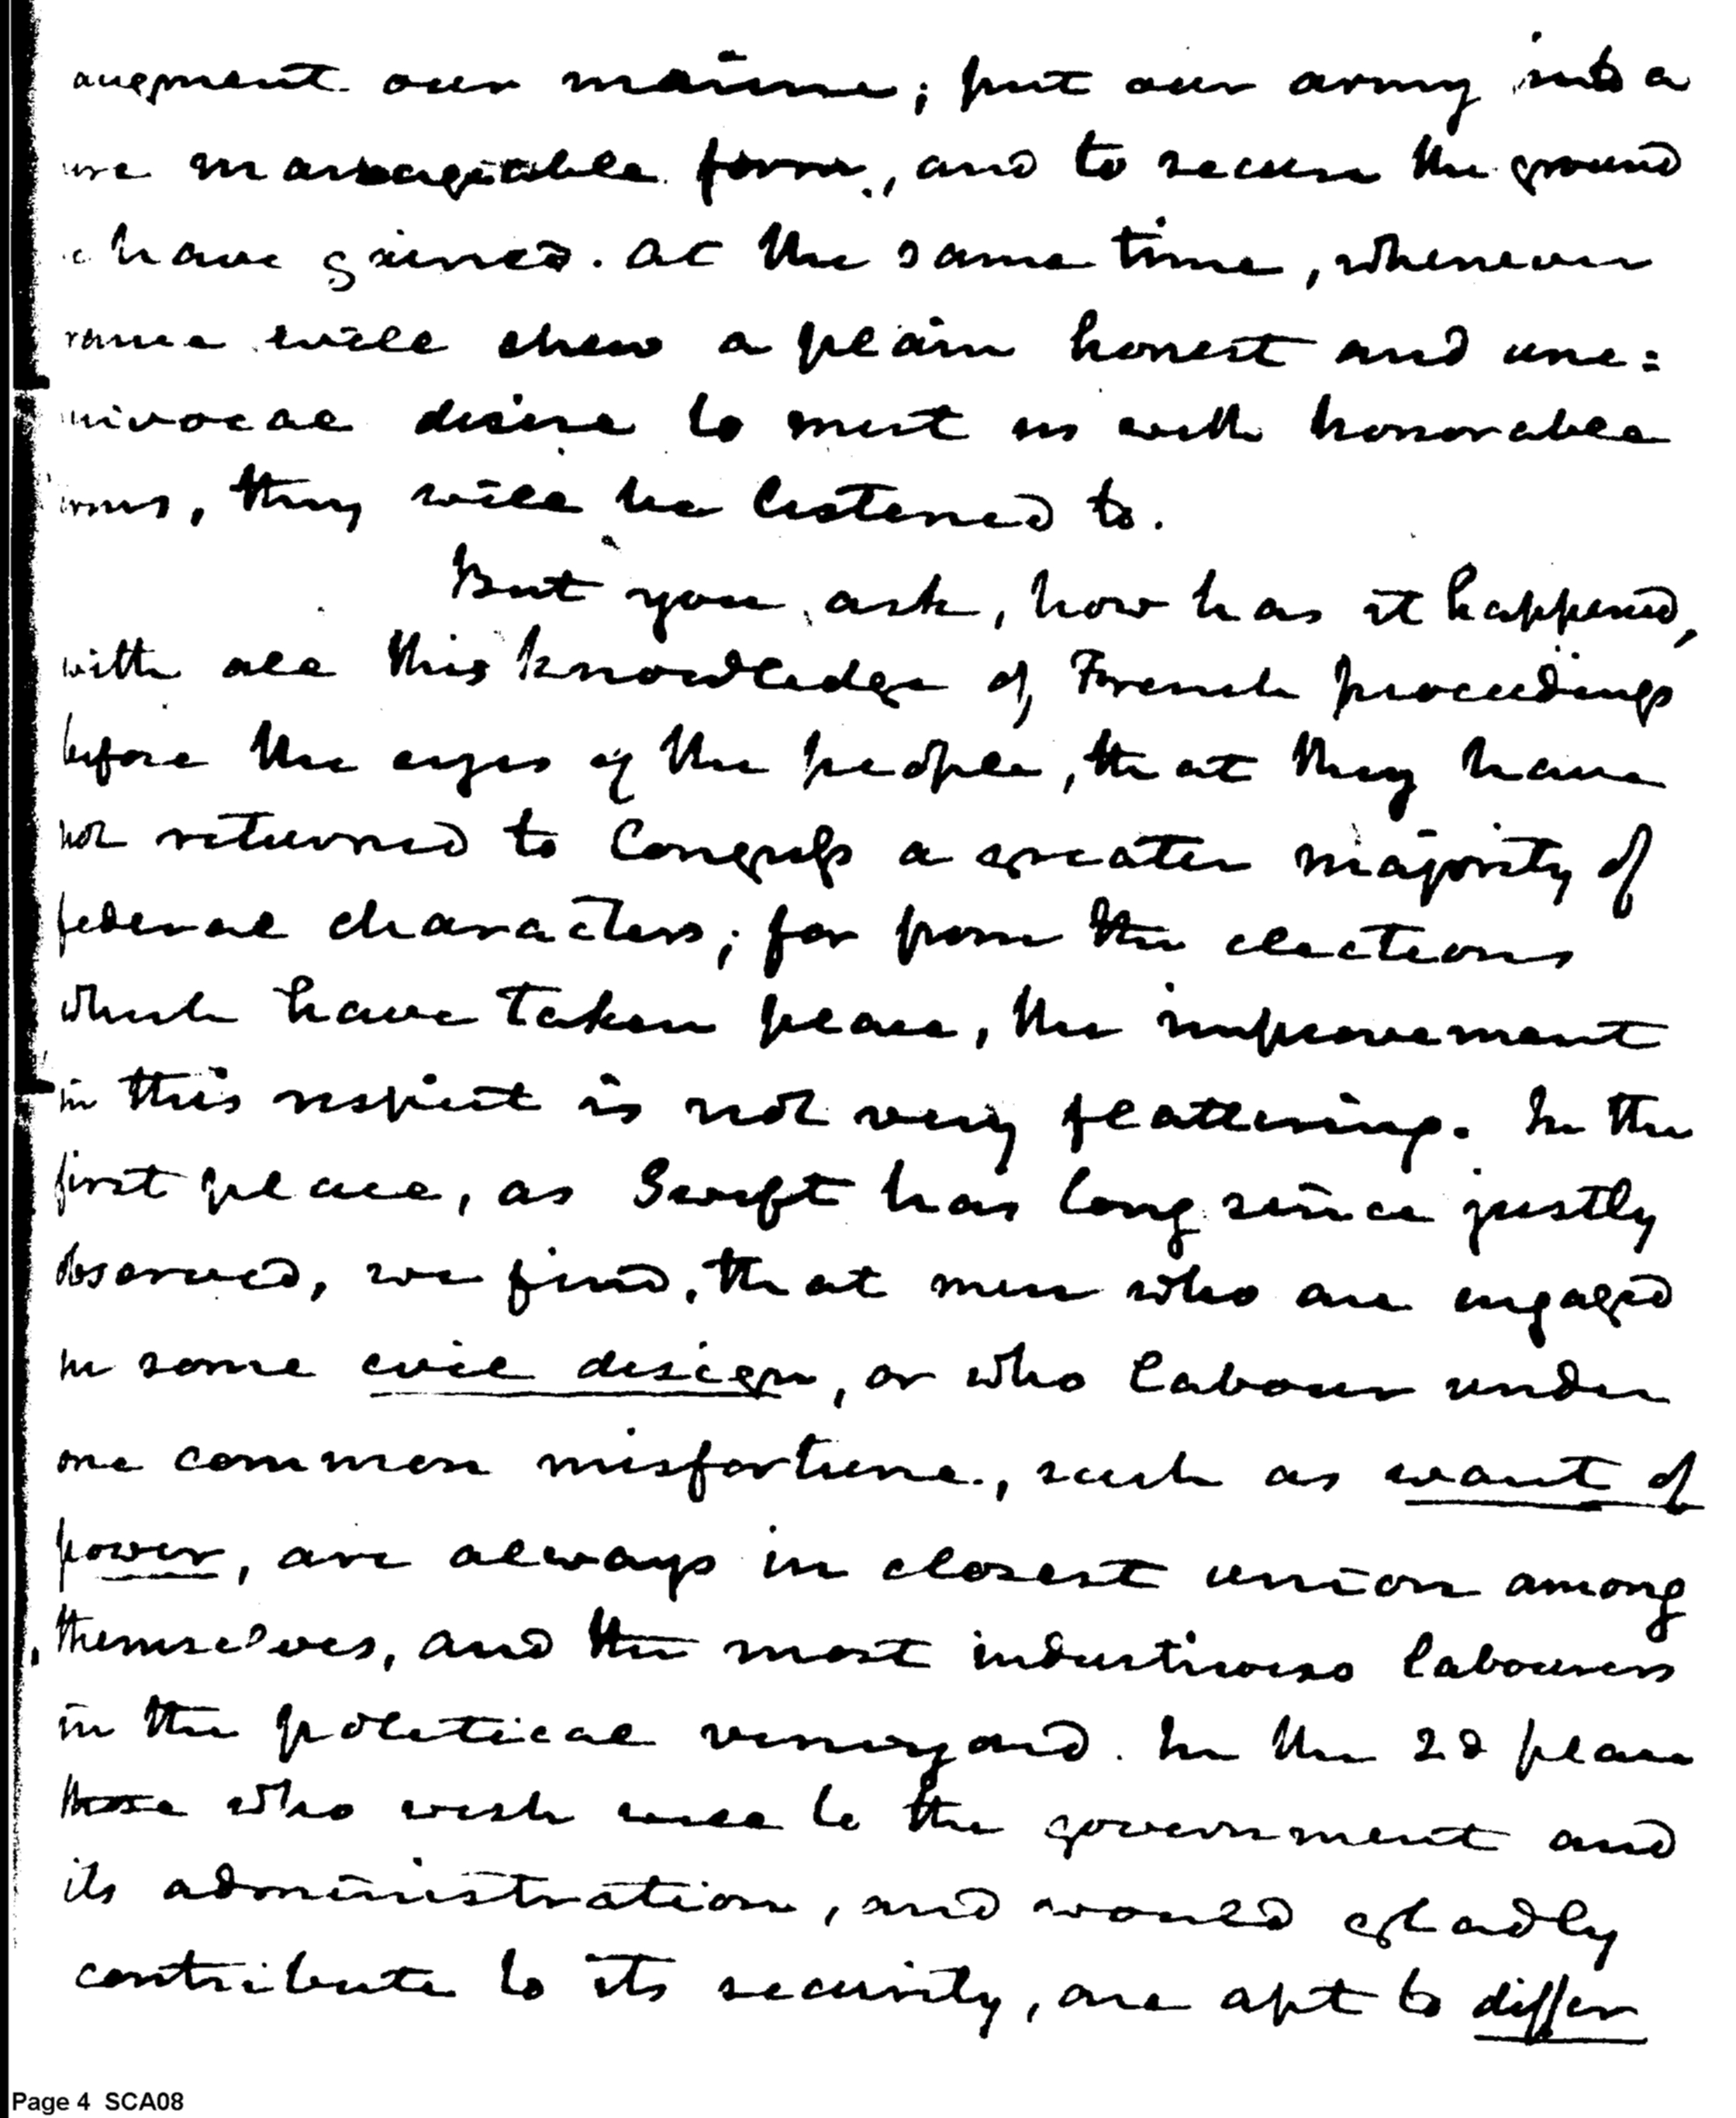 augment our marine; put our army into a
manageable form, and to secure the ground
have gained. at the same time, whenever
will shew a plain honest and une=
desire to meet us with honorable
, they will be listened to.
But you ask, how has it happened,
with all this knowledge of French proceedings
before the eyes of the people, that they have
not returned to Congress a greater majority of
federal characters; for from the elections
which have taken place, the improvement
in this respect is not very flattering. In the
first place, as Swift has long since justly
observed, we find, that men who are engaged
in some evil design, or who labour under
one common misfortune, such as want of
power, are always in closest union among
themselves, and the most industrious labourers
in the political vineyard. In the 2d place
those who wish well to the government and
its administration, and would gladly
contribute to its security, are apt to differ
Page 4 SCA08